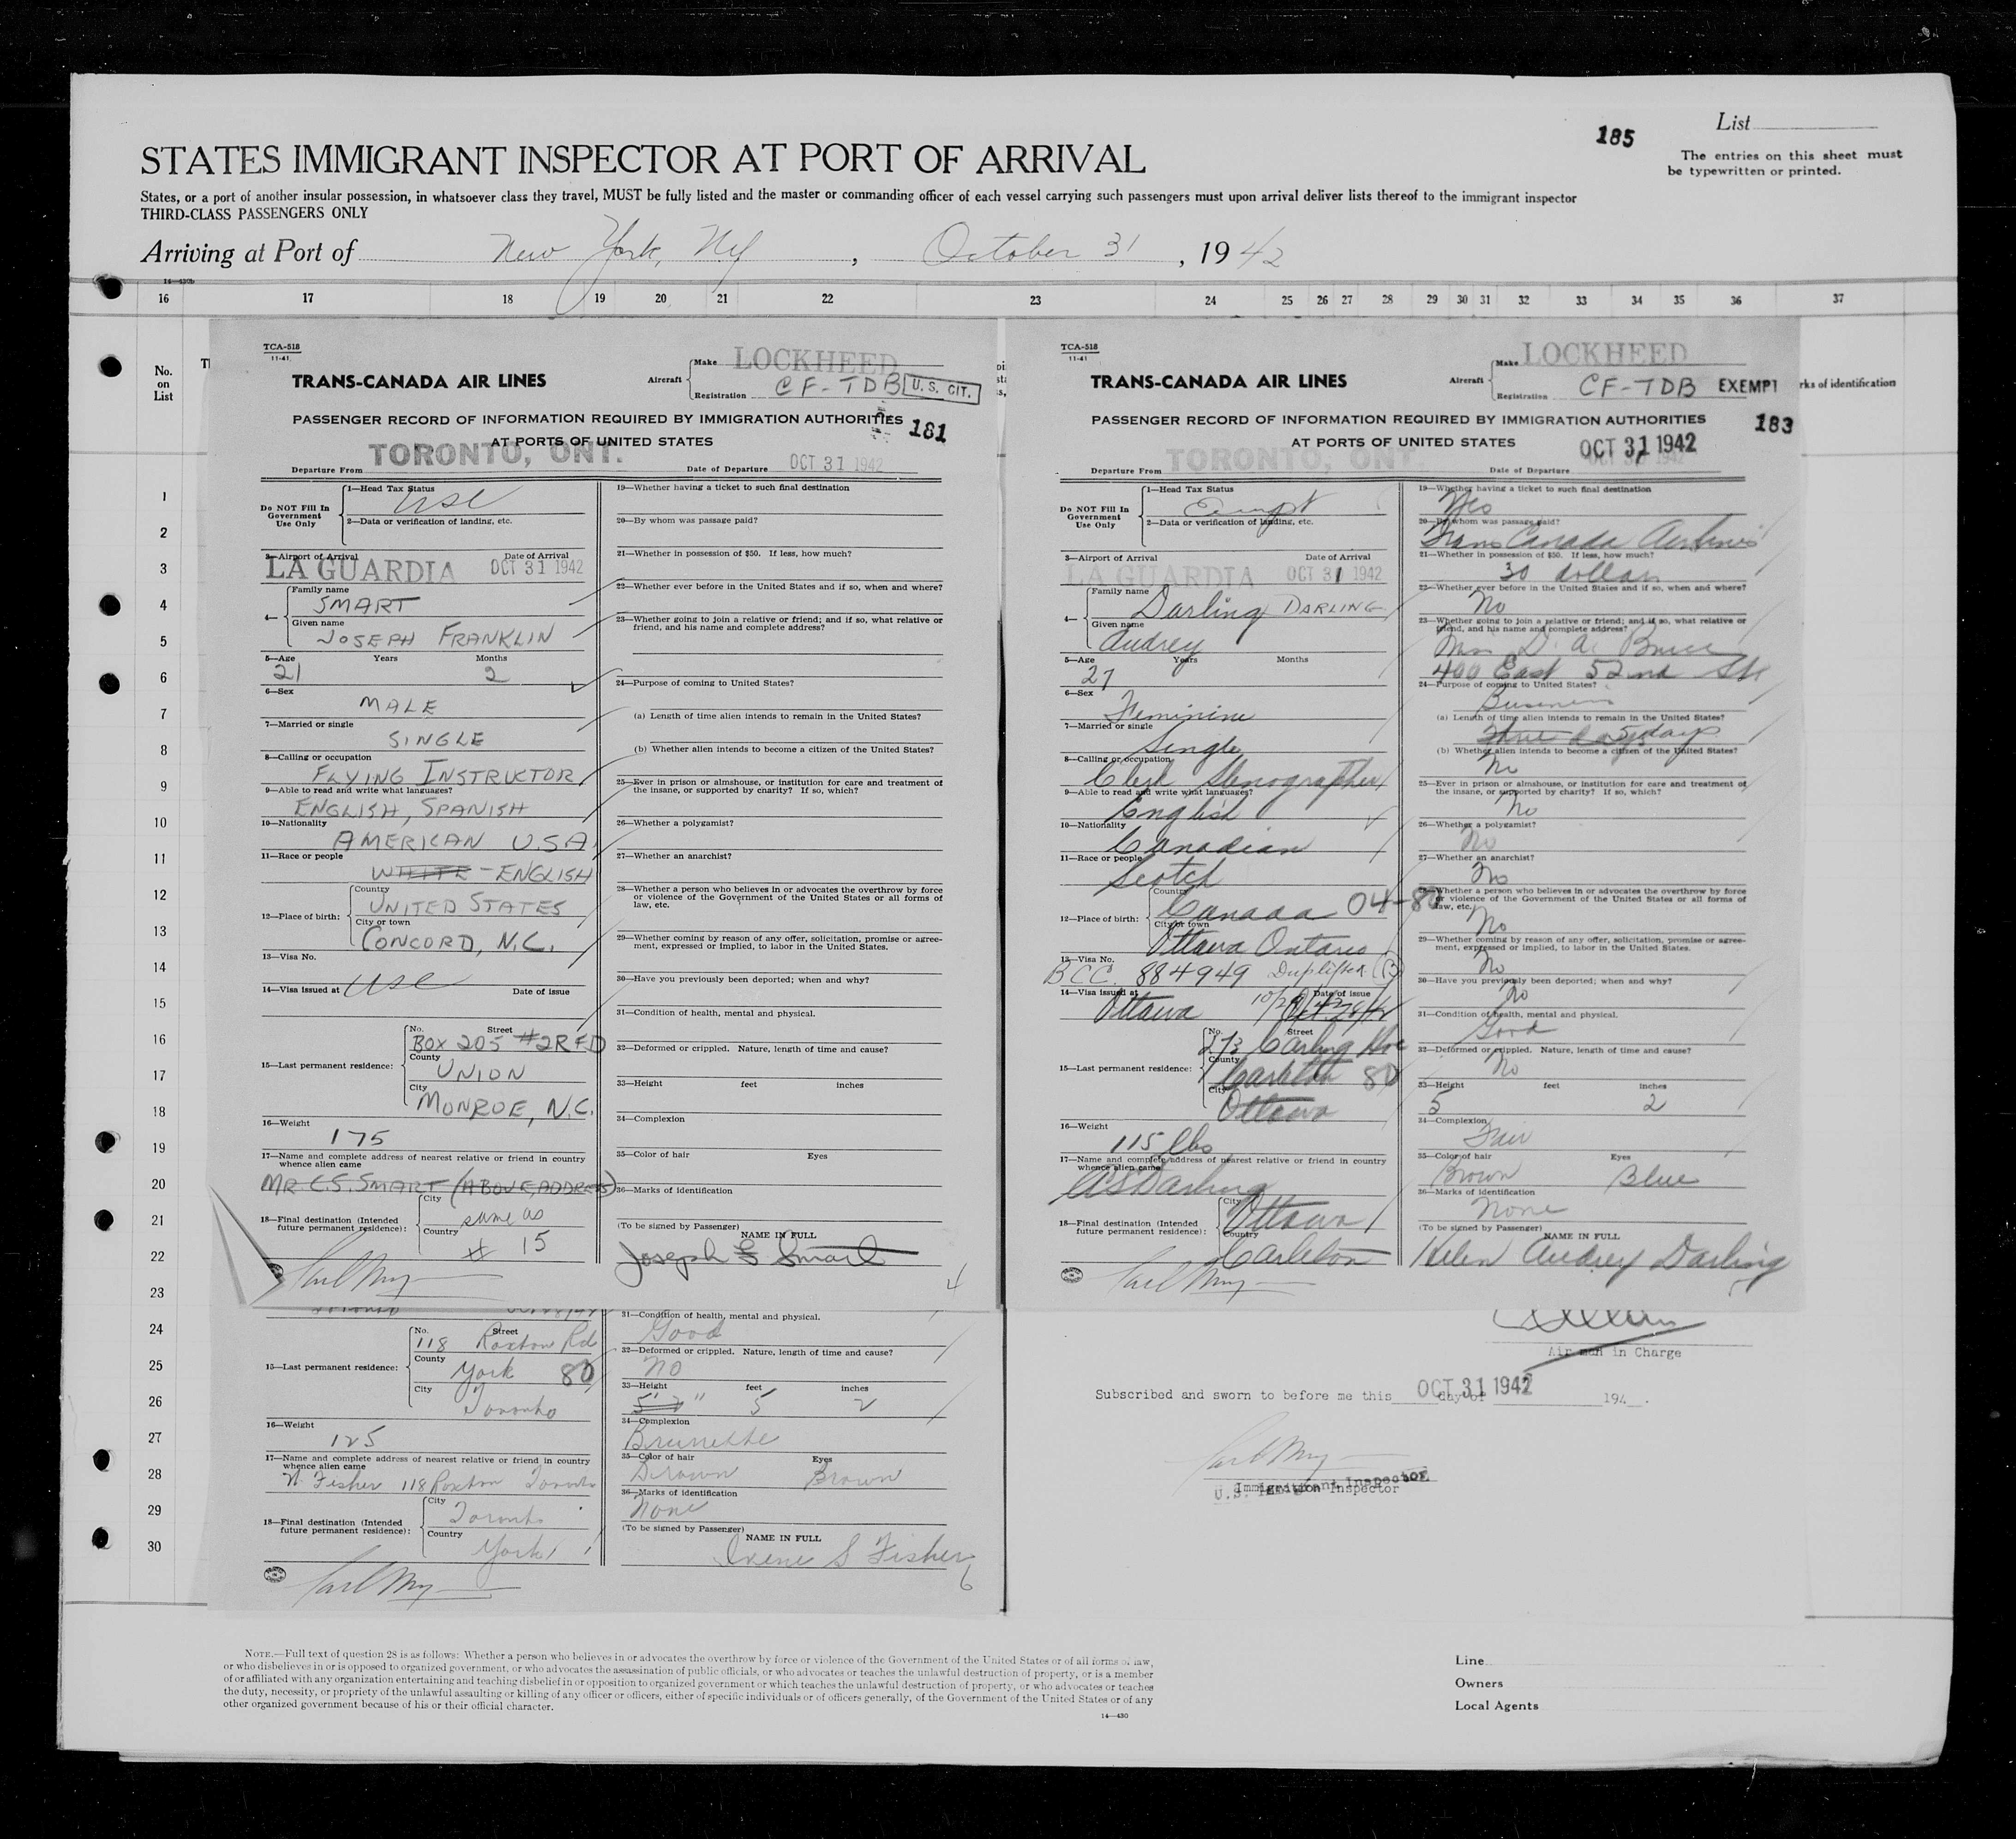 185
List
The entries on this sheet must
be typewritten or printed.
STATES IMMIGRANT INSPECTOR AT PORT OF ARRIVAL
States, or a port of another insular possession, in whatsoever class they travel, MUST be fully listed and the master or commanding officer of each vessel carrying such passengers must upon arrival deliver lists thereof to the immigrant inspector
THIRD-CLASS PASSENGERS ONLY
Arriving at Port of New York, NY, October 31, 1942
14—430b
16 17 18 19 20 21 22 23 24 25 26 27 28 29 30 31 32 33 34 35 36 37
No.
on
List
rks of identification
1
2
3
4
5
6
7
8
9
10
11
12
13
14
15
16
17
18
19
20
21
22
23
24
25
26
27
28
29
30
TCA-518
11-41
Make LOCKHEED
TRANS-CANADA AIR LINES
Aircraft
Registration CF-TDB
U. S. CIT.
PASSENGER RECORD OF INFORMATION REQUIRED BY IMMIGRATION AUTHORITIES
181
AT PORTS OF UNITED STATES
Departure From TORONTO, ONT.
Date of Departure OCT 31 1942
Do NOT Fill In
Government
Use Only
1—Head Tax Status
USC
2—Data or verification of landing, etc.
3—Airport of Arrival Date of Arrival
LA GUARDIA OCT 31 1942
4—
Family name
SMART
Given name
JOSEPH FRANKLIN
5—Age Years Months
21 2
6—Sex
MALE
7—Married or single
SINGLE
8—Calling or occupation
FLYING INSTRUCTOR
9—Able to read and write what languages?
ENGLISH, SPANISH
10—Nationality
AMERICAN U.S.A.
11—Race or people
WHITE - ENGLISH
12—Place of birth:
Country
UNITED STATES
City or town
CONCORD, N.C.
13—Visa No.
USC
14—Visa issued at Date of issue
15—Last permanent residence:
No. Street
BOX 205 #2 RFD
County
UNION
City
MONROE, N.C.
16—Weight
175
17—Name and complete address of nearest relative or friend in country
whence alien came
MR C.S. SMART (ABOVE ADDRESS)
18—Final destination (Intended
future permanent residence):
City
same as
Country
# 15
19—Whether having a ticket to such final destination
20—By whom was passage paid?
21—Whether in possession of $50. If less, how much?
22—Whether ever before in the United States and if so, when and where?
23—Whether going to join a relative or friend; and if so, what relative or
friend, and his name and complete address?
24—Purpose of coming to United States?
(a) Length of time alien intends to remain in the United States?
(b) Whether alien intends to become a citizen of the United States?
25—Ever in prison or almshouse, or institution for care and treatment of
the insane, or supported by charity? If so, which?
26—Whether a polygamist?
27—Whether an anarchist?
28—Whether a person who believes in or advocates the overthrow by force
or violence of the Government of the United States or all forms of
law, etc.
29—Whether coming by reason of any offer, solicitation, promise or agree-
ment, expressed or implied, to labor in the United States.
30—Have you previously been deported; when and why?
31—Condition of health, mental and physical.
32—Deformed or crippled. Nature, length of time and cause?
33—Height feet inches
34—Complexion
35—Color of hair Eyes
36—Marks of identification
(To be signed by Passenger)
NAME IN FULL
Joseph F Smart
4
TCA-518
11-41
Make LOCKHEED
TRANS-CANADA AIR LINES
Aircraft
Registration CF-TDB
EXEMPT
PASSENGER RECORD OF INFORMATION REQUIRED BY IMMIGRATION AUTHORITIES
183
AT PORTS OF UNITED STATES
OCT 31 1942
Departure From TORONTO, ONT.
Date of Departure
Do NOT Fill In
Government
Use Only
1—Head Tax Status
Exempt
2—Data or verification of landing, etc.
3—Airport of Arrival Date of Arrival
LA GUARDIA OCT 31 1942
4—
Family name
Darling DARLING
Given name
Audrey
5—Age Years Months
27
6—Sex
Feminine
7—Married or single
Single
8—Calling or occupation
Clerk Stenographer
9—Able to read and write what languages?
English
10—Nationality
Canadian
11—Race or people
Scotch
12—Place of birth:
Country
Canada 04-80
City or town
Ottawa Ontario
13—Visa No.
BCC. 884949
14—Visa issued at Date of issue
Ottawa
15—Last permanent residence:
No. Street
273 Carling Ave
County
Carleton 80
City
Ottawa
16—Weight
115 lbs
17—Name and complete address of nearest relative or friend in country
whence alien came
AS Darling
18—Final destination (Intended
future permanent residence):
City
Ottawa
Country
Carleton
19—Whether having a ticket to such final destination
Yes
20—By whom was passage paid?
Trans Canada Airlines
21—Whether in possession of $50. If less, how much?
30 dollars
22—Whether ever before in the United States and if so, when and where?
No
23—Whether going to join a relative or friend; and if so, what relative or
friend, and his name and complete address?
D. A. Bruce
400 East 52nd St
24—Purpose of coming to United States?
Business
(a) Length of time alien intends to remain in the United States?
5 days
(b) Whether alien intends to become a citizen of the United States?
No
25—Ever in prison or almshouse, or institution for care and treatment of
the insane, or supported by charity? If so, which?
No
26—Whether a polygamist?
No
27—Whether an anarchist?
No
28—Whether a person who believes in or advocates the overthrow by force
or violence of the Government of the United States or all forms of
law, etc.
No
29—Whether coming by reason of any offer, solicitation, promise or agree-
ment, expressed or implied, to labor in the United States.
No
30—Have you previously been deported; when and why?
No
31—Condition of health, mental and physical.
Good
32—Deformed or crippled. Nature, length of time and cause?
No
33—Height feet inches
5 2
34—Complexion
Fair
35—Color of hair Eyes
Brown Blue
36—Marks of identification
None
(To be signed by Passenger)
NAME IN FULL
Helen Audrey Darling
5
15—Last permanent residence:
No. Street
118 Roxton Rd
County
York 80
City
Toronto
16—Weight
125
17—Name and complete address of nearest relative or friend in country
whence alien came
N. Fisher 118 Roxton Toronto
18—Final destination (Intended
future permanent residence):
City
Toronto
Country
York
31—Condition of health, mental and physical.
Good
32—Deformed or crippled. Nature, length of time and cause?
NO
33—Height feet inches
5 2
34—Complexion
Brunette
35—Color of hair Eyes
Brown Brown
36—Marks of identification
None
(To be signed by Passenger)
NAME IN FULL
Irene S Fisher
6
Air man in Charge
Subscribed and sworn to before me this day of OCT 31 1942 194 .
Immigrant Inspector
U.S. Immigration Inspector
NOTE.—Full text of question 28 is as follows: Whether a person who believes in or advocates the overthrow by force or violence of the Government of the United States or of all forms of law,
or who disbelieves in or is opposed to organized government, or who advocates the assassination of public officials, or who advocates or teaches the unlawful destruction of property, or is a member
of or affiliated with any organization entertaining and teaching disbelief in or opposition to organized government or which teaches the unlawful destruction of property, or who advocates or teaches
the duty, necessity, or propriety of the unlawful assaulting or killing of any officer or officers, either of specific individuals or of officers generally, of the Government of the United States or of any
other organized government because of his or their official character.
14—430
Line
Owners
Local Agents